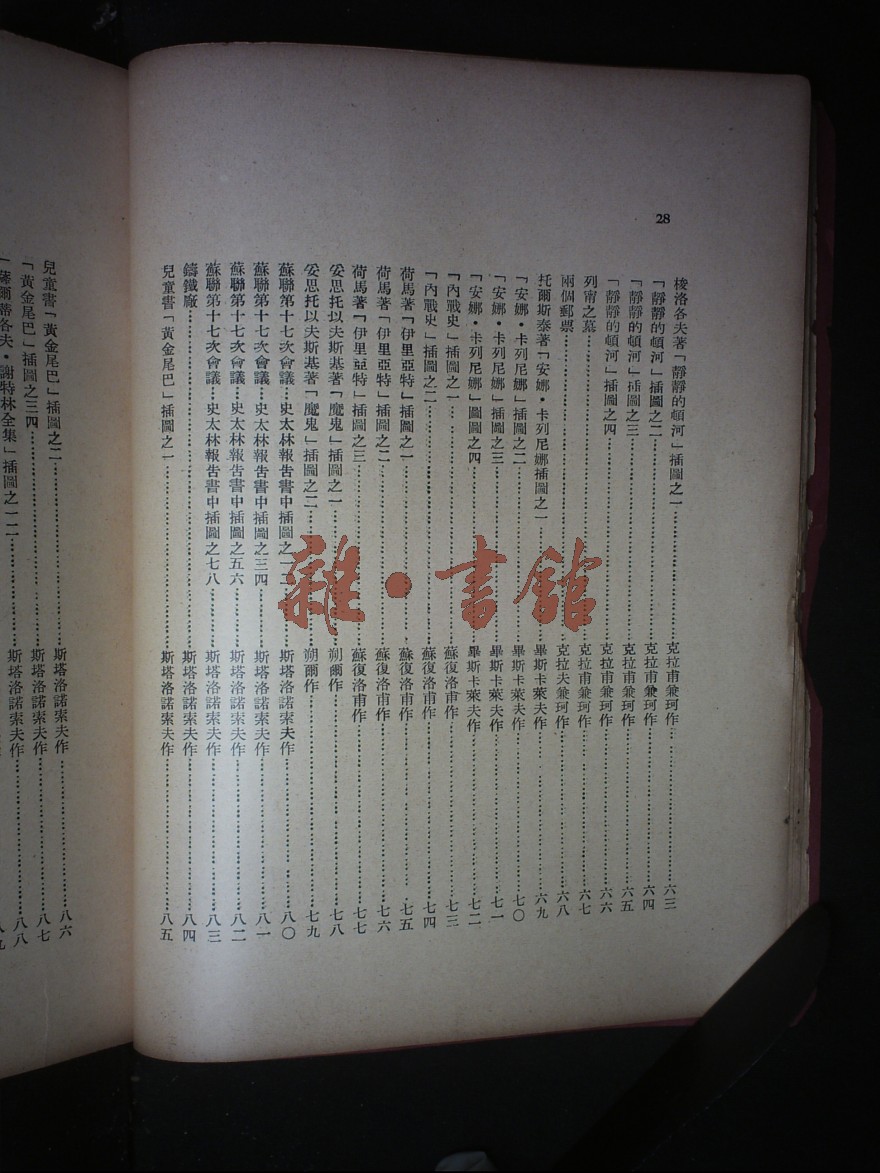 28
梭洛各夫著「靜靜的頓河」插圖之一……克拉甫兼珂作……六三
「靜靜的頓河」插圖之二……克拉甫兼珂作……六四
「靜靜的頓河」插圖之三……克拉甫兼珂作……六五
「靜靜的頓河」插圖之四……克拉甫兼珂作……六六
列甯之墓……克拉甫兼珂作……六七
兩個郵票……克拉夫兼珂作……六八
托爾斯泰著「安娜・卡列尼娜插圖之一……畢斯卡萊夫作……六九
「安娜・卡列尼娜」插圖之二……畢斯卡萊夫作……七〇
「安娜・卡列尼娜」插圖之三……畢斯卡萊夫作……七一
「安娜・卡列尼娜」圖圖之四……畢斯卡萊夫作……七二
「內戰史」插圖之一……蘇復洛甫作……七三
「內戰史」插圖之二……蘇復洛甫作……七四
荷馬著「伊里亞特」插圖之一……蘇復洛甫作……七五
荷馬著「伊里亞特」插圖之二……蘇復洛甫作……七六
荷馬著「伊里亞特」插圖之三……蘇復洛甫作……七七
妥思托以夫斯基著「魔鬼」插圖之一……朔爾作……七八
妥思托以夫斯基著「魔鬼」插圖之二……朔爾作……七九
蘇聯第十七次會議…史太林報告書中插圖之一二……斯塔洛諾索夫作……八〇
蘇聯第十七次會議…史太林報告書中插圖之三四……斯塔洛諾索夫作……八一
蘇聯第十七次會議…史太林報告書中插圖之五六……斯塔洛諾索夫作……八二
蘇聯第十七次會議…史太林報告書中插圖之七八……斯塔洛諾索夫作……八三
鑄鐵廠……斯塔洛諾索夫作……八四
兒童書「黃金尾巴」插圖之一……斯塔洛諾索夫作……八五
兒童書「黃金尾巴」插圖之二……斯塔洛諾索夫作……八六
「黃金尾巴」插圖之三四……斯塔洛諾索夫作……八七
「薩爾蒂各夫・謝特林全集」插圖之一二……斯塔洛諾索夫作……八八
雜・書館